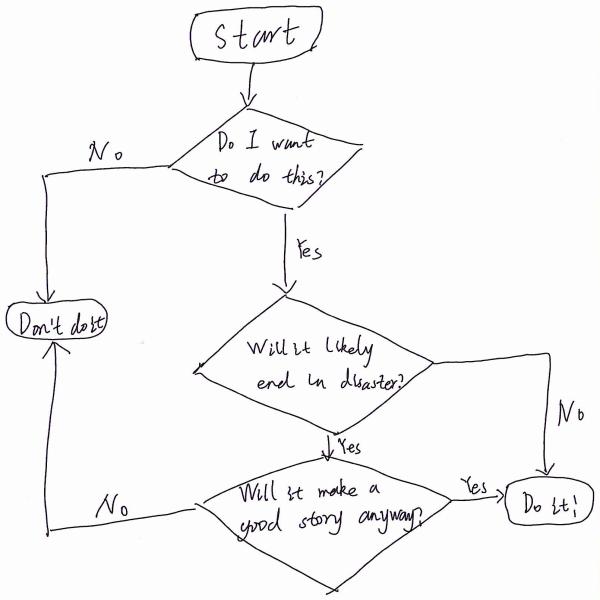 Start
Do I want
to do this?
No
Yes
Don't do it
Will it likely
end in disaster?
No
Yes
Will it make a
good story anyway?
Yes
No
Do it!